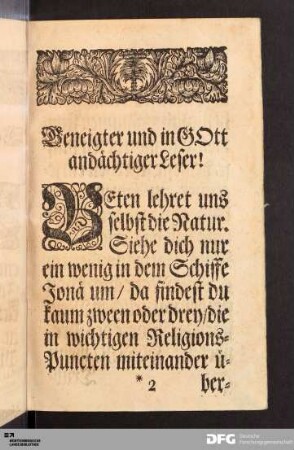 Geneigter und in GOtt
andächtiger Leser!
BEten lehret uns
selbst die Natur.
Siehe dich nur
ein wenig in dem Schiffe
Jonä um/ da findest du
kaum zween oder drey/die
in wichtigen Religions-
Puncten miteinander ü-
* 2 ber-
DFG Deutsche
Forschungsgemeinschaft